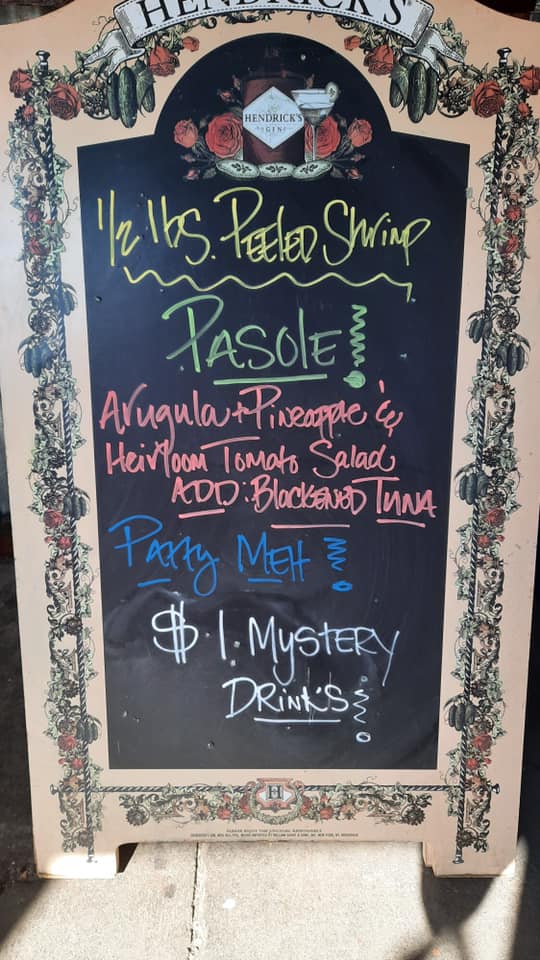 HENDRICK'S
HENDRICK'S
GIN
1/2 lbs. PEELED Shrimp
PASOLE!
Arugula + Pineapple &
Heirloom Tomato Salad
ADD: Blackened TUNA
PATTY MELT!
$1. MYSTERY
DRINK'S!
H